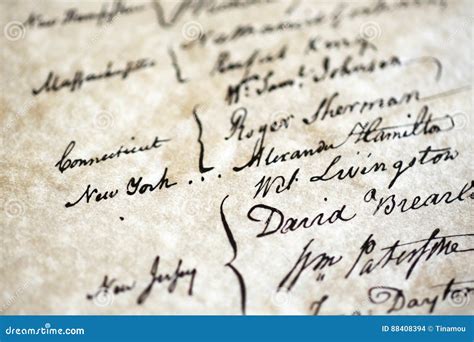 New Hampshire {
Massachusetts {
Rufus King
Wm. Saml. Johnson
Connecticut { Roger Sherman
New York ... Alexander Hamilton
New Jersey {
Wil: Livingston
David Brearl
Wm Paterson
Dayton
dreamstime.com
ID 88408394 © Tinamou